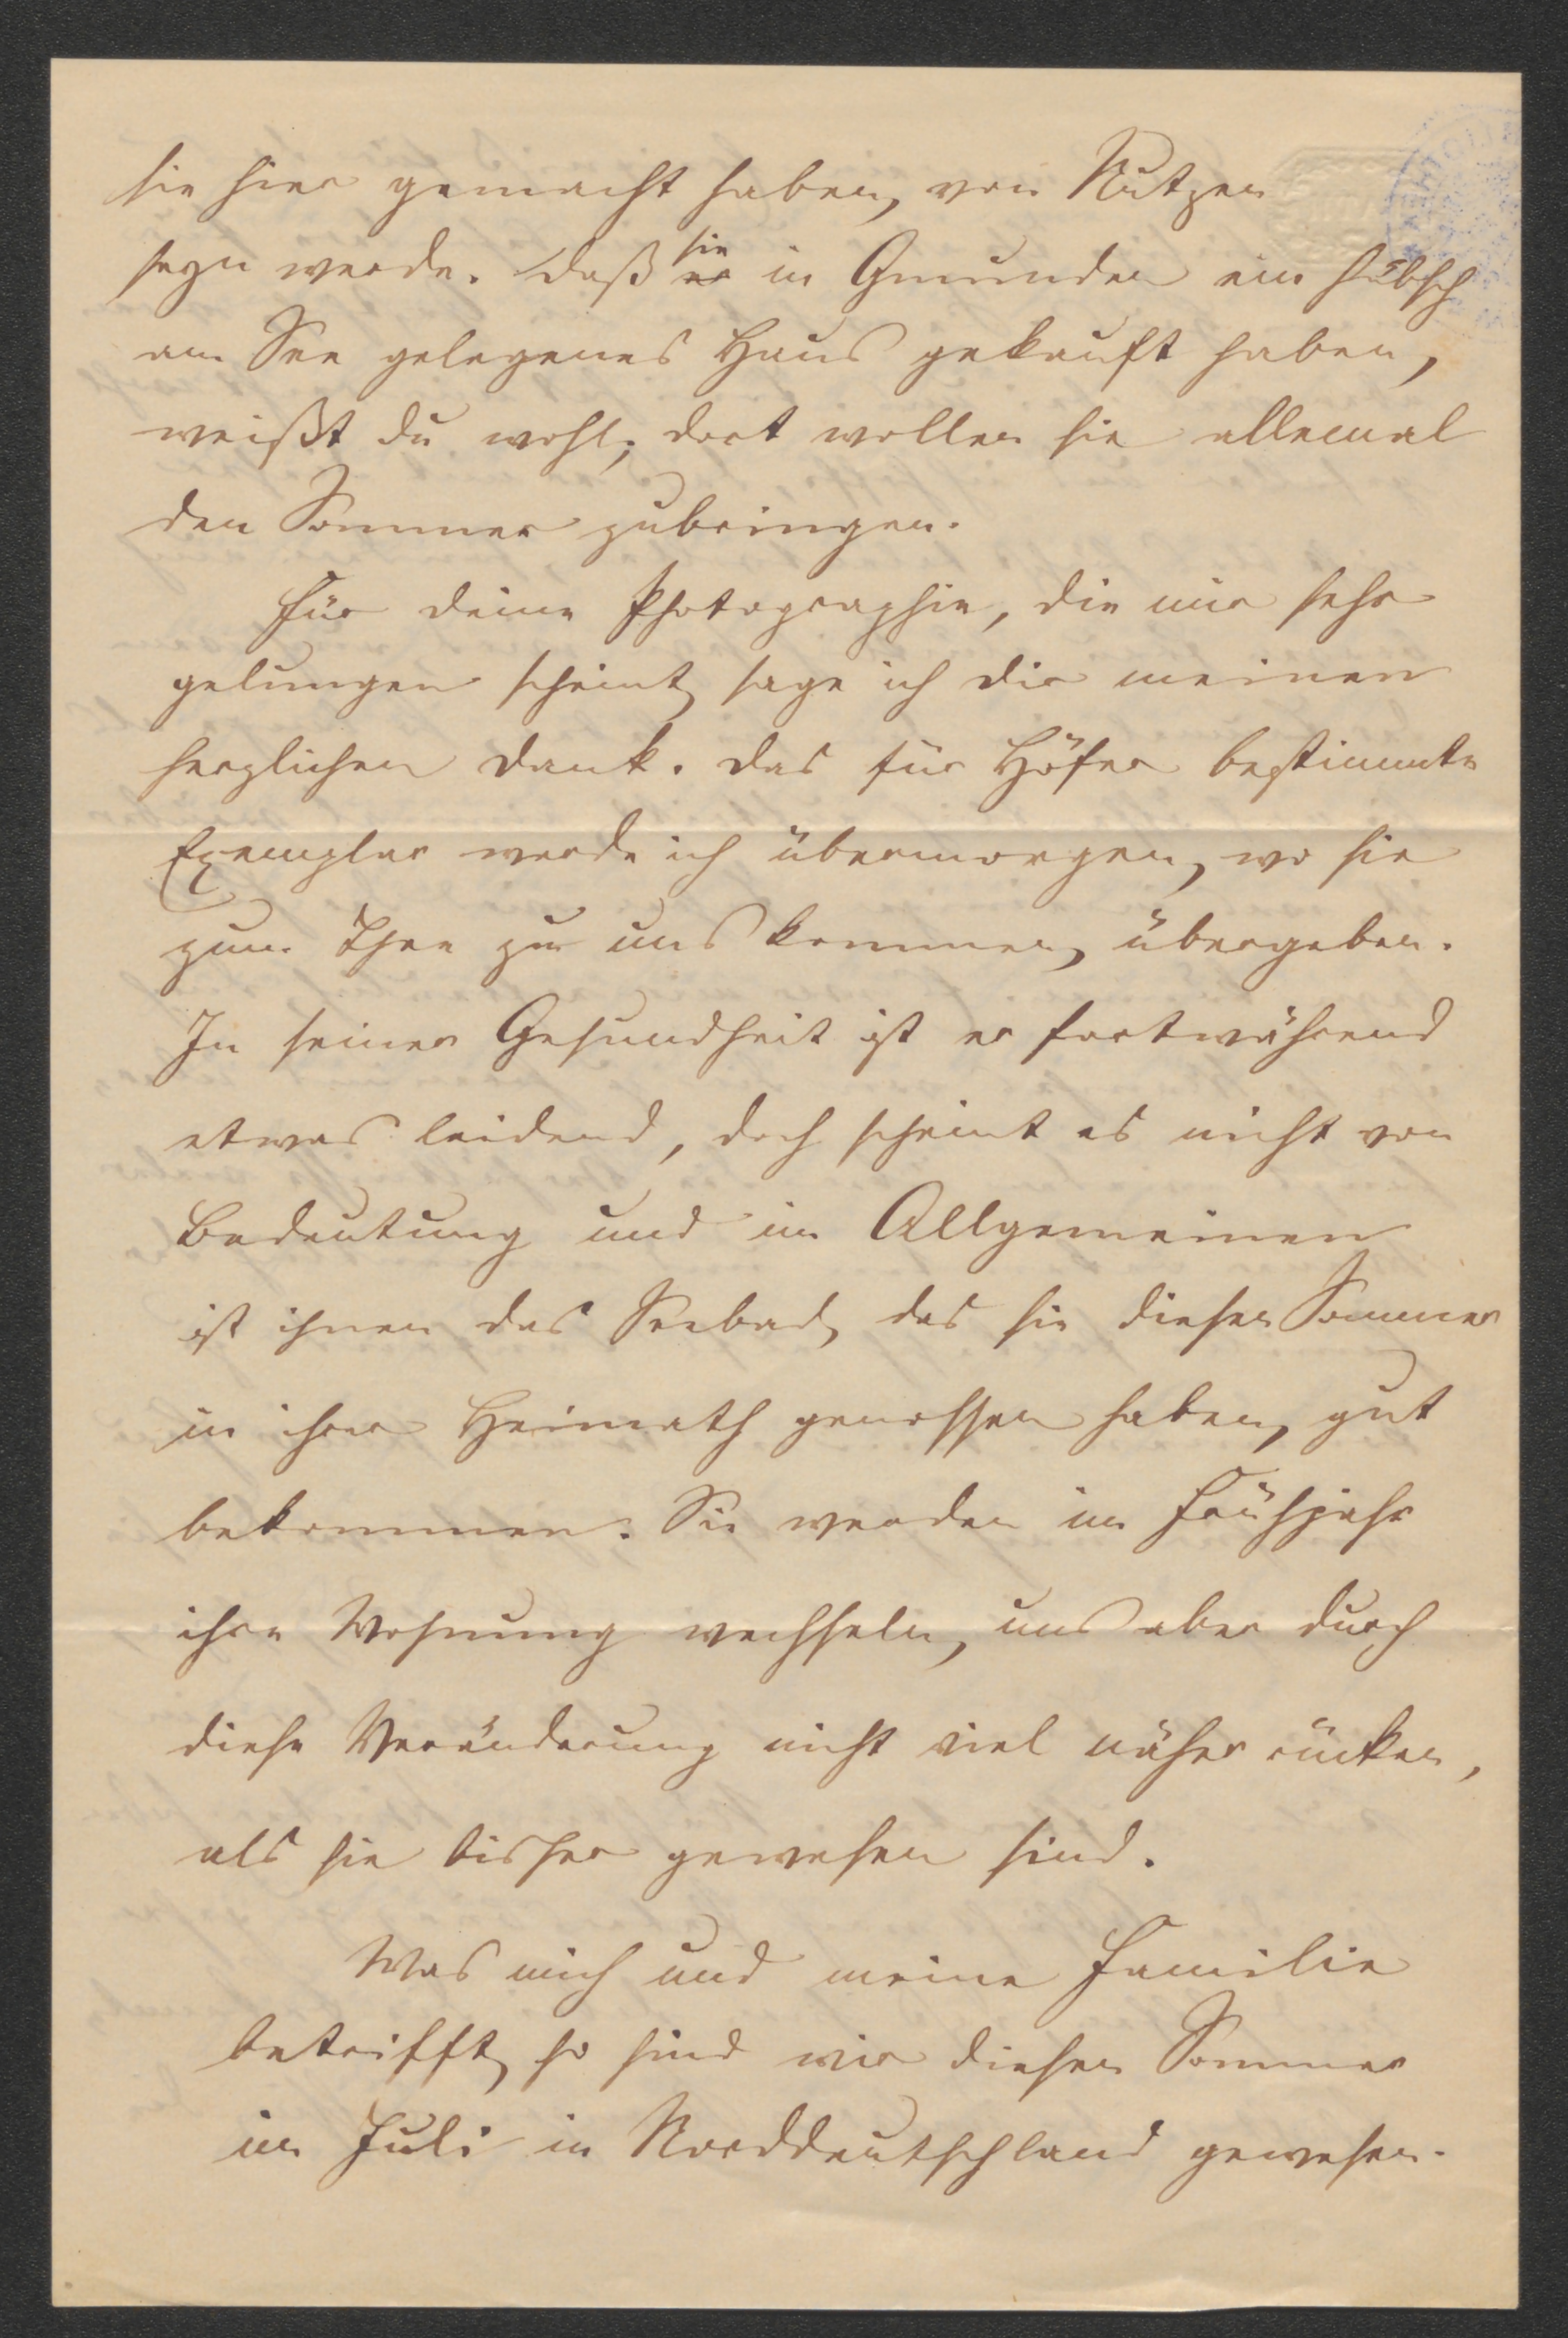 sie hier gemacht haben, von Nutzen
seyn werde. Daß sie in Gmunden ein hübsch
am See gelegenes Haus gekauft haben,
weißt du wohl; dort wollen sie allemal
den Sommer zubringen.
Für deine Photographie, die mir sehr
gelungen scheint, sage ich dir meinen
herzlichen Dank. Das für Höfer bestimmte
Exemplar werde ich übermorgen, wo sie
zum Thee zu uns kommen, übergeben.
In seiner Gesundheit ist er fortwährend
etwas leidend, doch scheint es nicht von
Bedeutung und im Allgemeinen
ist ihnen das Seebad, das sie diesen Sommer
in ihrer Heimath genossen haben, gut
bekommen. Sie werden im Frühjahr
ihre Wohnung wechseln, uns aber durch
diese Veränderung nicht viel näher rücken,
als sie bisher gewesen sind.
Was mich und meine Familie
betrifft, so sind wir diesen Sommer
im Juli in Norddeutschland gewesen.